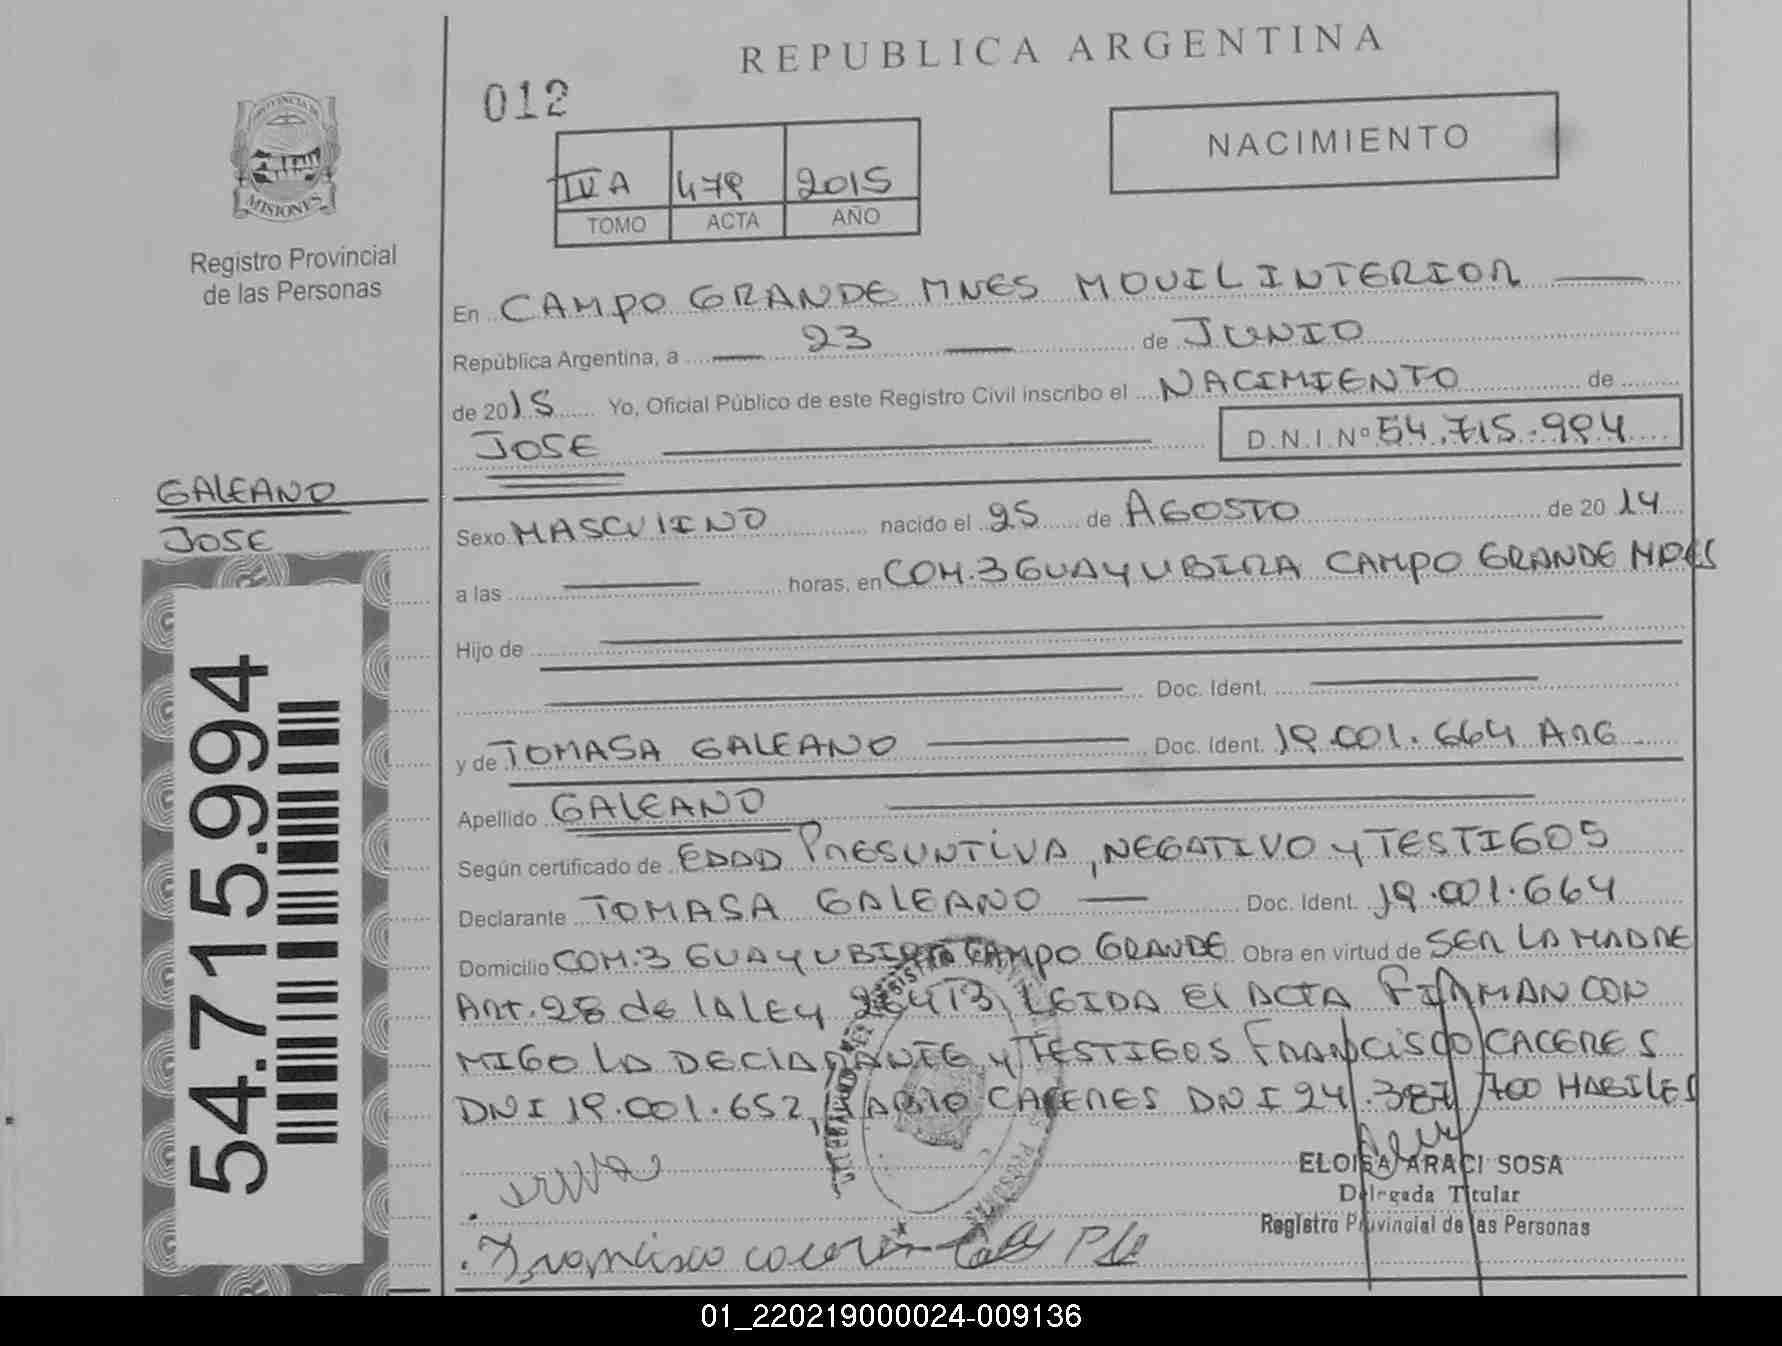 REPUBLICA ARGENTINA
012
NACIMIENTO
IV A 479 2015
TOMO ACTA AÑO
PROVINCIA DE
MISIONES
Registro Provincial
de las Personas
En CAMPO GRANDE MNES MOVIL INTERIOR
República Argentina, a 23 de JUNIO
de 2015 Yo, Oficial Público de este Registro Civil inscribo el NACIMIENTO de
JOSE D.N.I. Nº 54.715.994
GALEANO
JOSE
Sexo MASCULINO nacido el 25 de AGOSTO de 2014
a las horas, en COM. 3 GUAYUBIRA CAMPO GRANDE MNES
Hijo de
Doc. Ident.
y de TOMASA GALEANO Doc. Ident. 19.001.664 ARG
Apellido GALEANO
Según certificado de EDAD PRESUNTIVA, NEGATIVO y TESTIGOS
Declarante TOMASA GALEANO Doc. Ident. 19.001.664
Domicilio COM. 3 GUAYUBIRA CAMPO GRANDE Obra en virtud de SER LA MADRE
ART. 28 de la LEY 26413 LEIDA El ACTA FIRMAN CON
MIGO LA DECLARANTE y TESTIGOS FRANCISCO CACERES
DNI 19.001.652, MARIO CACERES DNI 24.387.700 HABILES
ELOISA ARACI SOSA
Delegada Titular
Registro Provincial de las Personas
Francisco
54.715.994
01_220219000024-009136